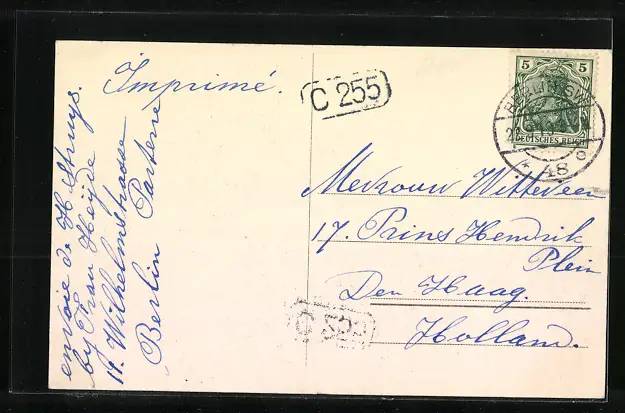 Imprimé.
C 255
5 5
BERLIN S.W.
DEUTSCHES REICH
* 48 e
Mevrouw Witteveen
17. Prins Hendrik
Plein
Den Haag.
Holland.
envoie de H. Struys.
by Frau Heyde
19. Wilhelmstrasse
Berlin Parterre
C 255